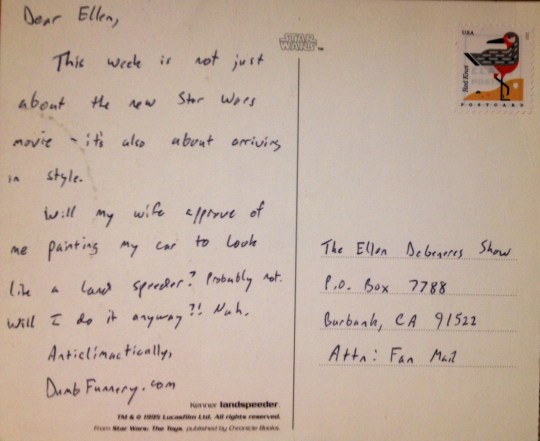 Dear Ellen,
This week is not just
about the new Star Wars
movie - it's also about arriving
in style.
Will my wife approve of
me painting my car to look
like a land speeder? Probably not.
Will I do it anyway?! Nah.
Anticlimactically,
DumbFunnery.com
Kenner landspeeder
TM & © 1995 Lucasfilm Ltd. All rights reserved.
From Star Wars: The Toys, published by Chronicle Books.
STAR
WARS TM
USA
Red Knot
POSTCARD
The Ellen Degeneres Show
P.O. Box 7788
Burbank, CA 91522
Attn: Fan Mail